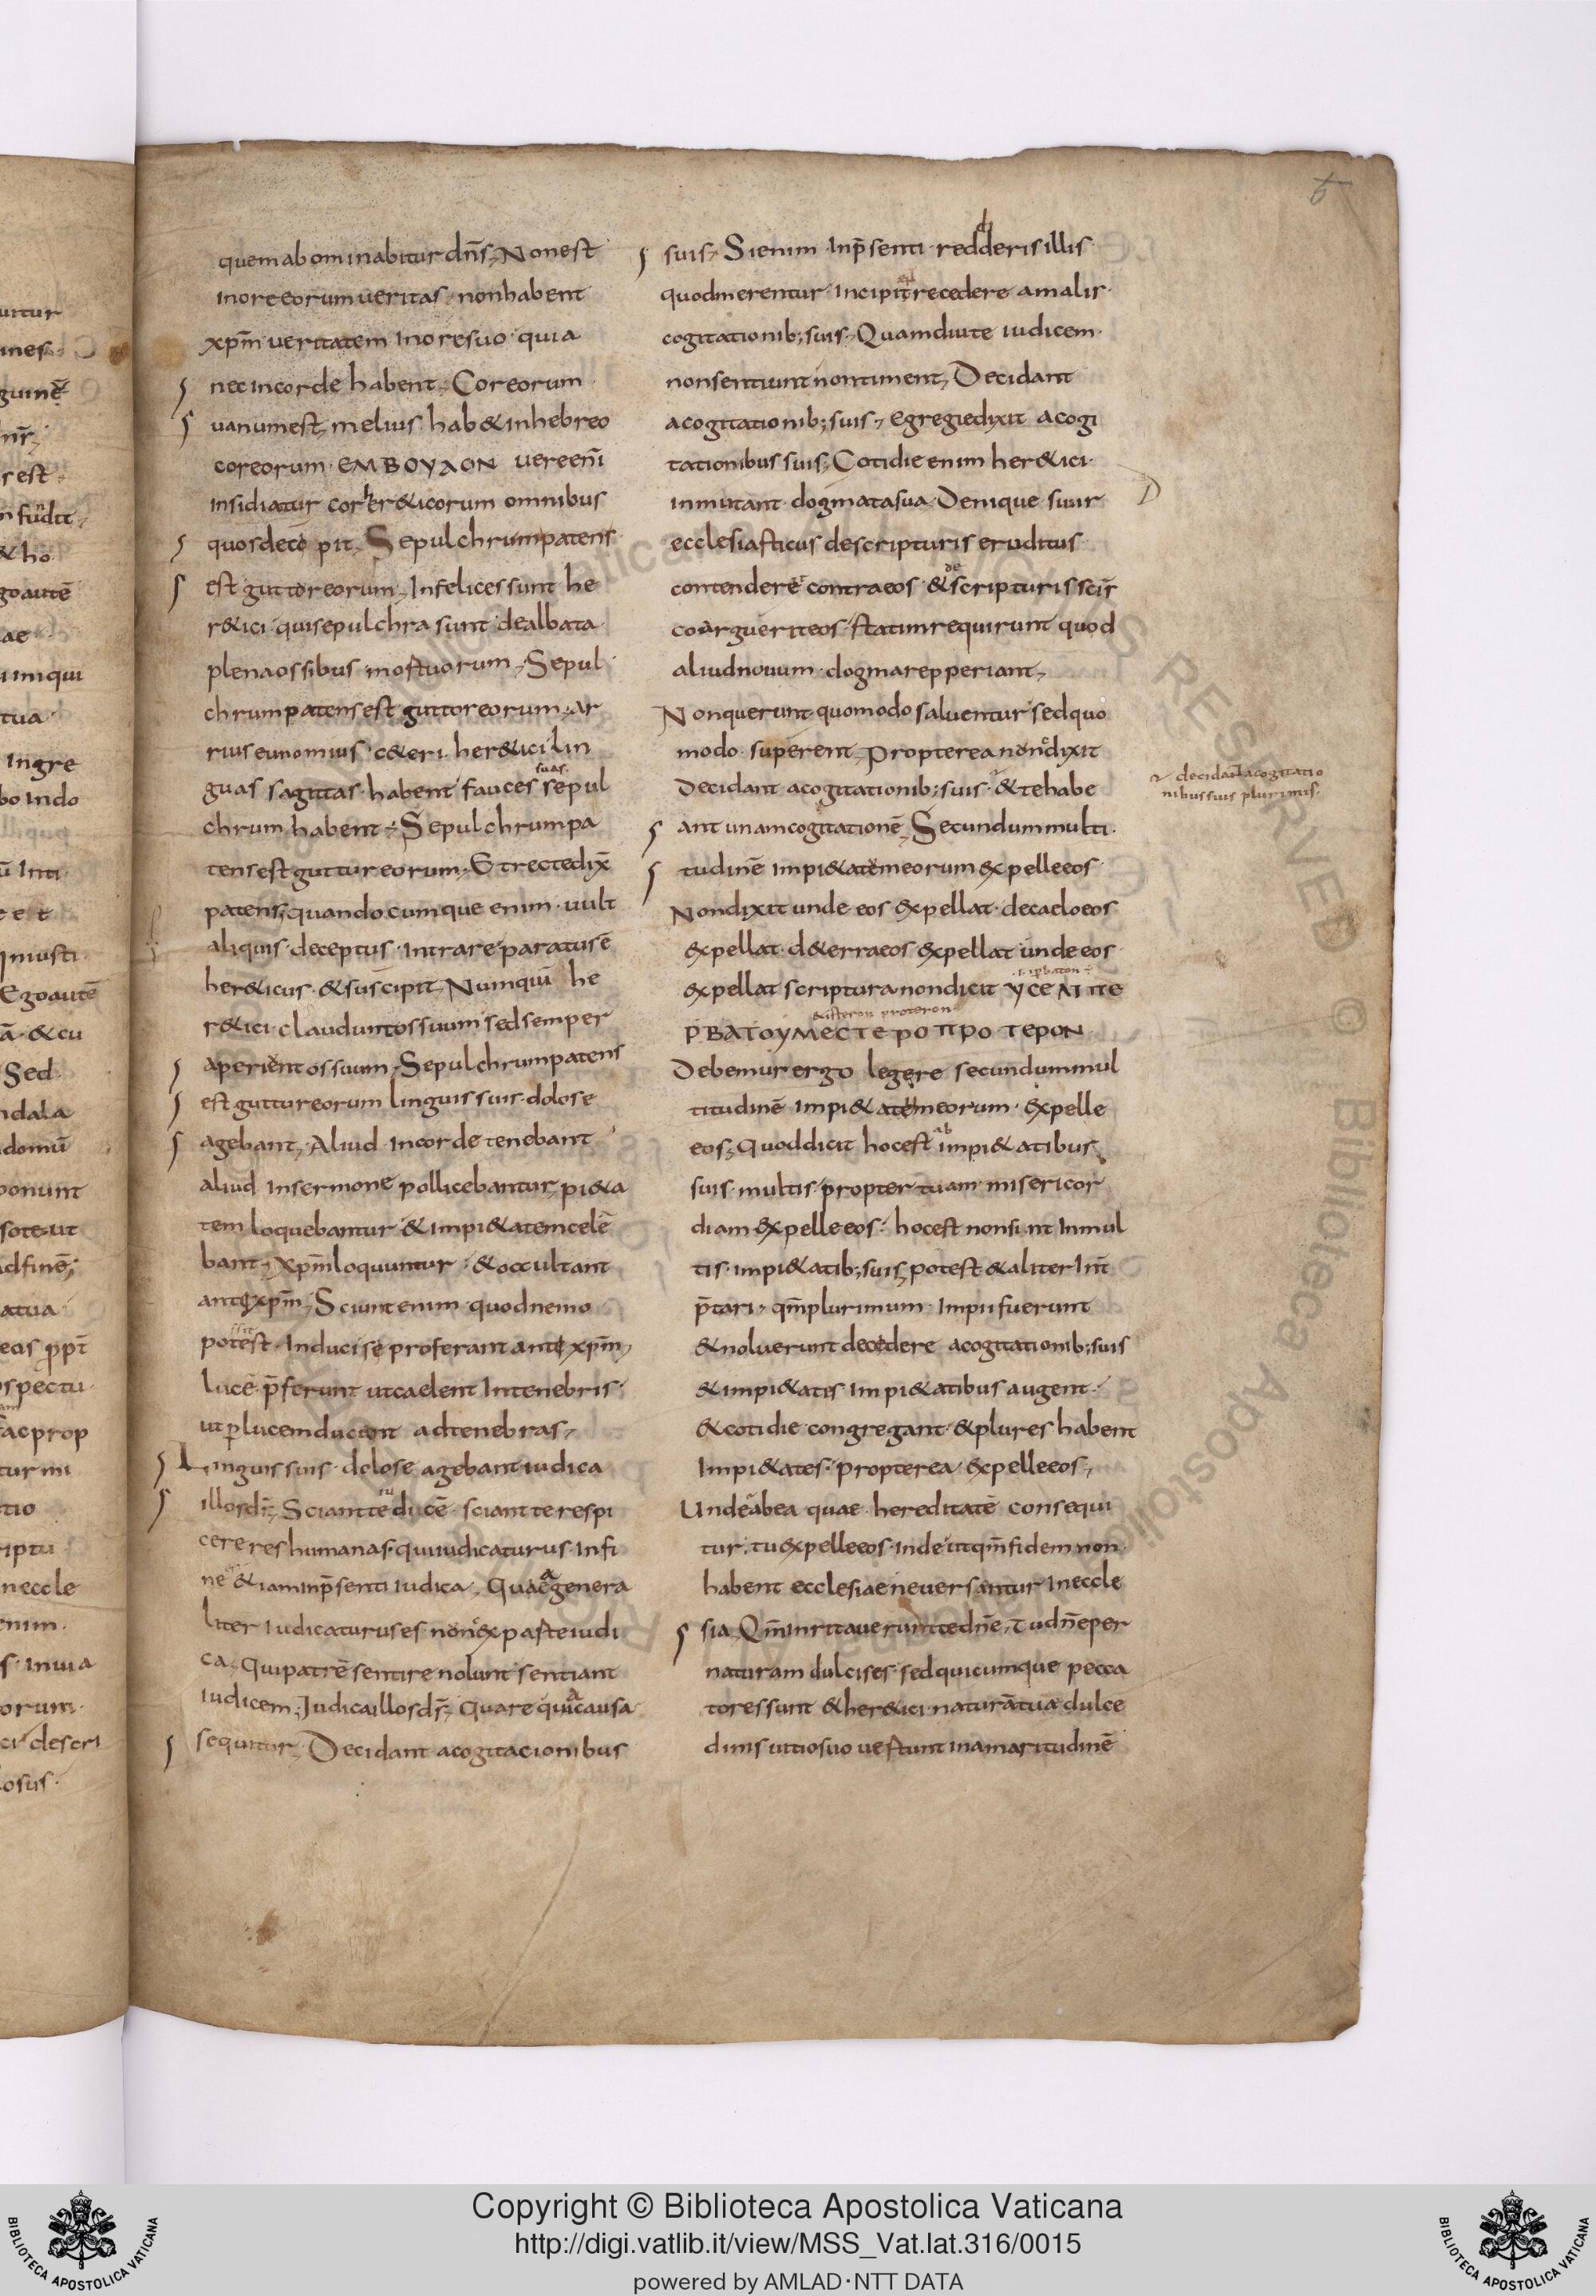 quem abominabitur dn̄s; Non est
in ore eorum ueritas · non habent
xpm̄ ueritatem in ore suo · quia
nec in corde habent; Cor eorum
uanum est, melius · hab& in hebreo
cor eorum · EMBOYΛON uere eni̅
insidiatur cor her&icorum omnibus
quos decepit; Sepulchrum patens
est guttor eorum; Infelices sunt he
r&ici · qui sepulchra sunt dealbata ·
plena ossibus mortuorum; Sepul
chrum patens est guttor eorum; ar
rius eunomius · c&eri her&ici lin
guas sagittas · habent fauces suas sepul
chrum habent; Sepulchrum pa
tens est guttur eorum; & recte dix̄
patens; quandocumque enim · uult
aliquis · deceptus · intrare paratus ē
her&icus · & suscipit; Numquid he
r&ici · claudunt os suum sed semper
aperient os suum; Sepulchrum patens
est guttur eorum linguis suis · dolose
agebant; Aliud in corde tenebant
aliud in sermone pollicebantur, pi&a
tem loquebantur & impi&atem cele
bant; Xpm̄ loquuntur · & occultant
antexpm̄; Sciunt enim · quod nemo
potest · induci se proferant antexpm̄,
lucē p̄ferunt ut caelent in tenebris ·
ut p lucem ducant ad tenebras;
Linguis suis · dolose agebant iudica
illos ds̄; Sciant te iudicē sciant te respi
cere res humanas · qui iudicaturus · in fi
ne & iam in p̄senti iudica; Quae genera
liter iudicaturus es nunc ex parte iudi
ca; Qui patrē sentire nolunt sentiant
iudicem; Iudica illos ds̄; Quare quia causa
sequitur; Decidant a cogitacionibus
suis; Si enim · in p̄senti · redderis illis
quod merentur · incipiunt recedere a malis ·
cogitationib; suis; Quamdiu te iudicem ·
non sentiunt non timent; Decidant
a cogitationib; suis; egregie dixit a cogi
tationibus suis; Cotidie enim her&ici ·
inmutant · dogmata sua · Denique si uir
ecclesiasticus de scripturis eruditus
contendere contra eos · & de scripturis scis̄
coarguerit eos · statim requirunt quod
aliud nouum · dogma repperiant;
Non querunt quomodo saluentur sed quo
modo · superent; Propterea non dixit
Decidant a cogitationib; suis · & te habe
ant unam cogitationē; Secundum multi
tudinē impi&atem eorum expelle eos
Non dixit unde eos expellat · de caelo eos
expellat · de terra eos expellat unde eos
.i. ipbaton
expellat scriptura non dicit YCEΛI ΠE
& isteron proteron
PBATOYMECTEPOΠPOTEPON
Debemus ergo legere secundum mul
titudinē impi&atem eorum · expelle
eos; Quod dicit hoc est ab impi&atibus
suis · multis · propter tuam misericor
diam expelle eos · hoc est non sint in mul
tis · impi&atib; suis, potest & aliter int̄
p̄tari · qm̄ plurimum · impii fuerunt
& noluerunt decedere a cogitationib; suis
& impi&atis impi&atibus augent ·
& cotidie congregant & plures habent
impi&ates · propterea expelle eos;
Unde abea quae hereditatē consequi
tur · tu expelle eos · inde ut qm̄ fidem non
habent ecclesiae ne uersantur in eccle
sia; Qm̄ inritauerunt te dn̄e; Tu dn̄e per
naturam dulcis es · sed quicumque pecca
tores sunt & her&ici naturā tua dulce
dinis uitio suo uertunt in amaritudinē
decidant a cogitatio
nibus suis plurimis ·
Copyright © Biblioteca Apostolica Vaticana
http://digi.vatlib.it/view/MSS_Vat.lat.316/0015
powered by AMLAD·NTT DATA
BIBLIOTECA APOSTOLICA VATICANA
BIBLIOTECA APOSTOLICA VATICANA